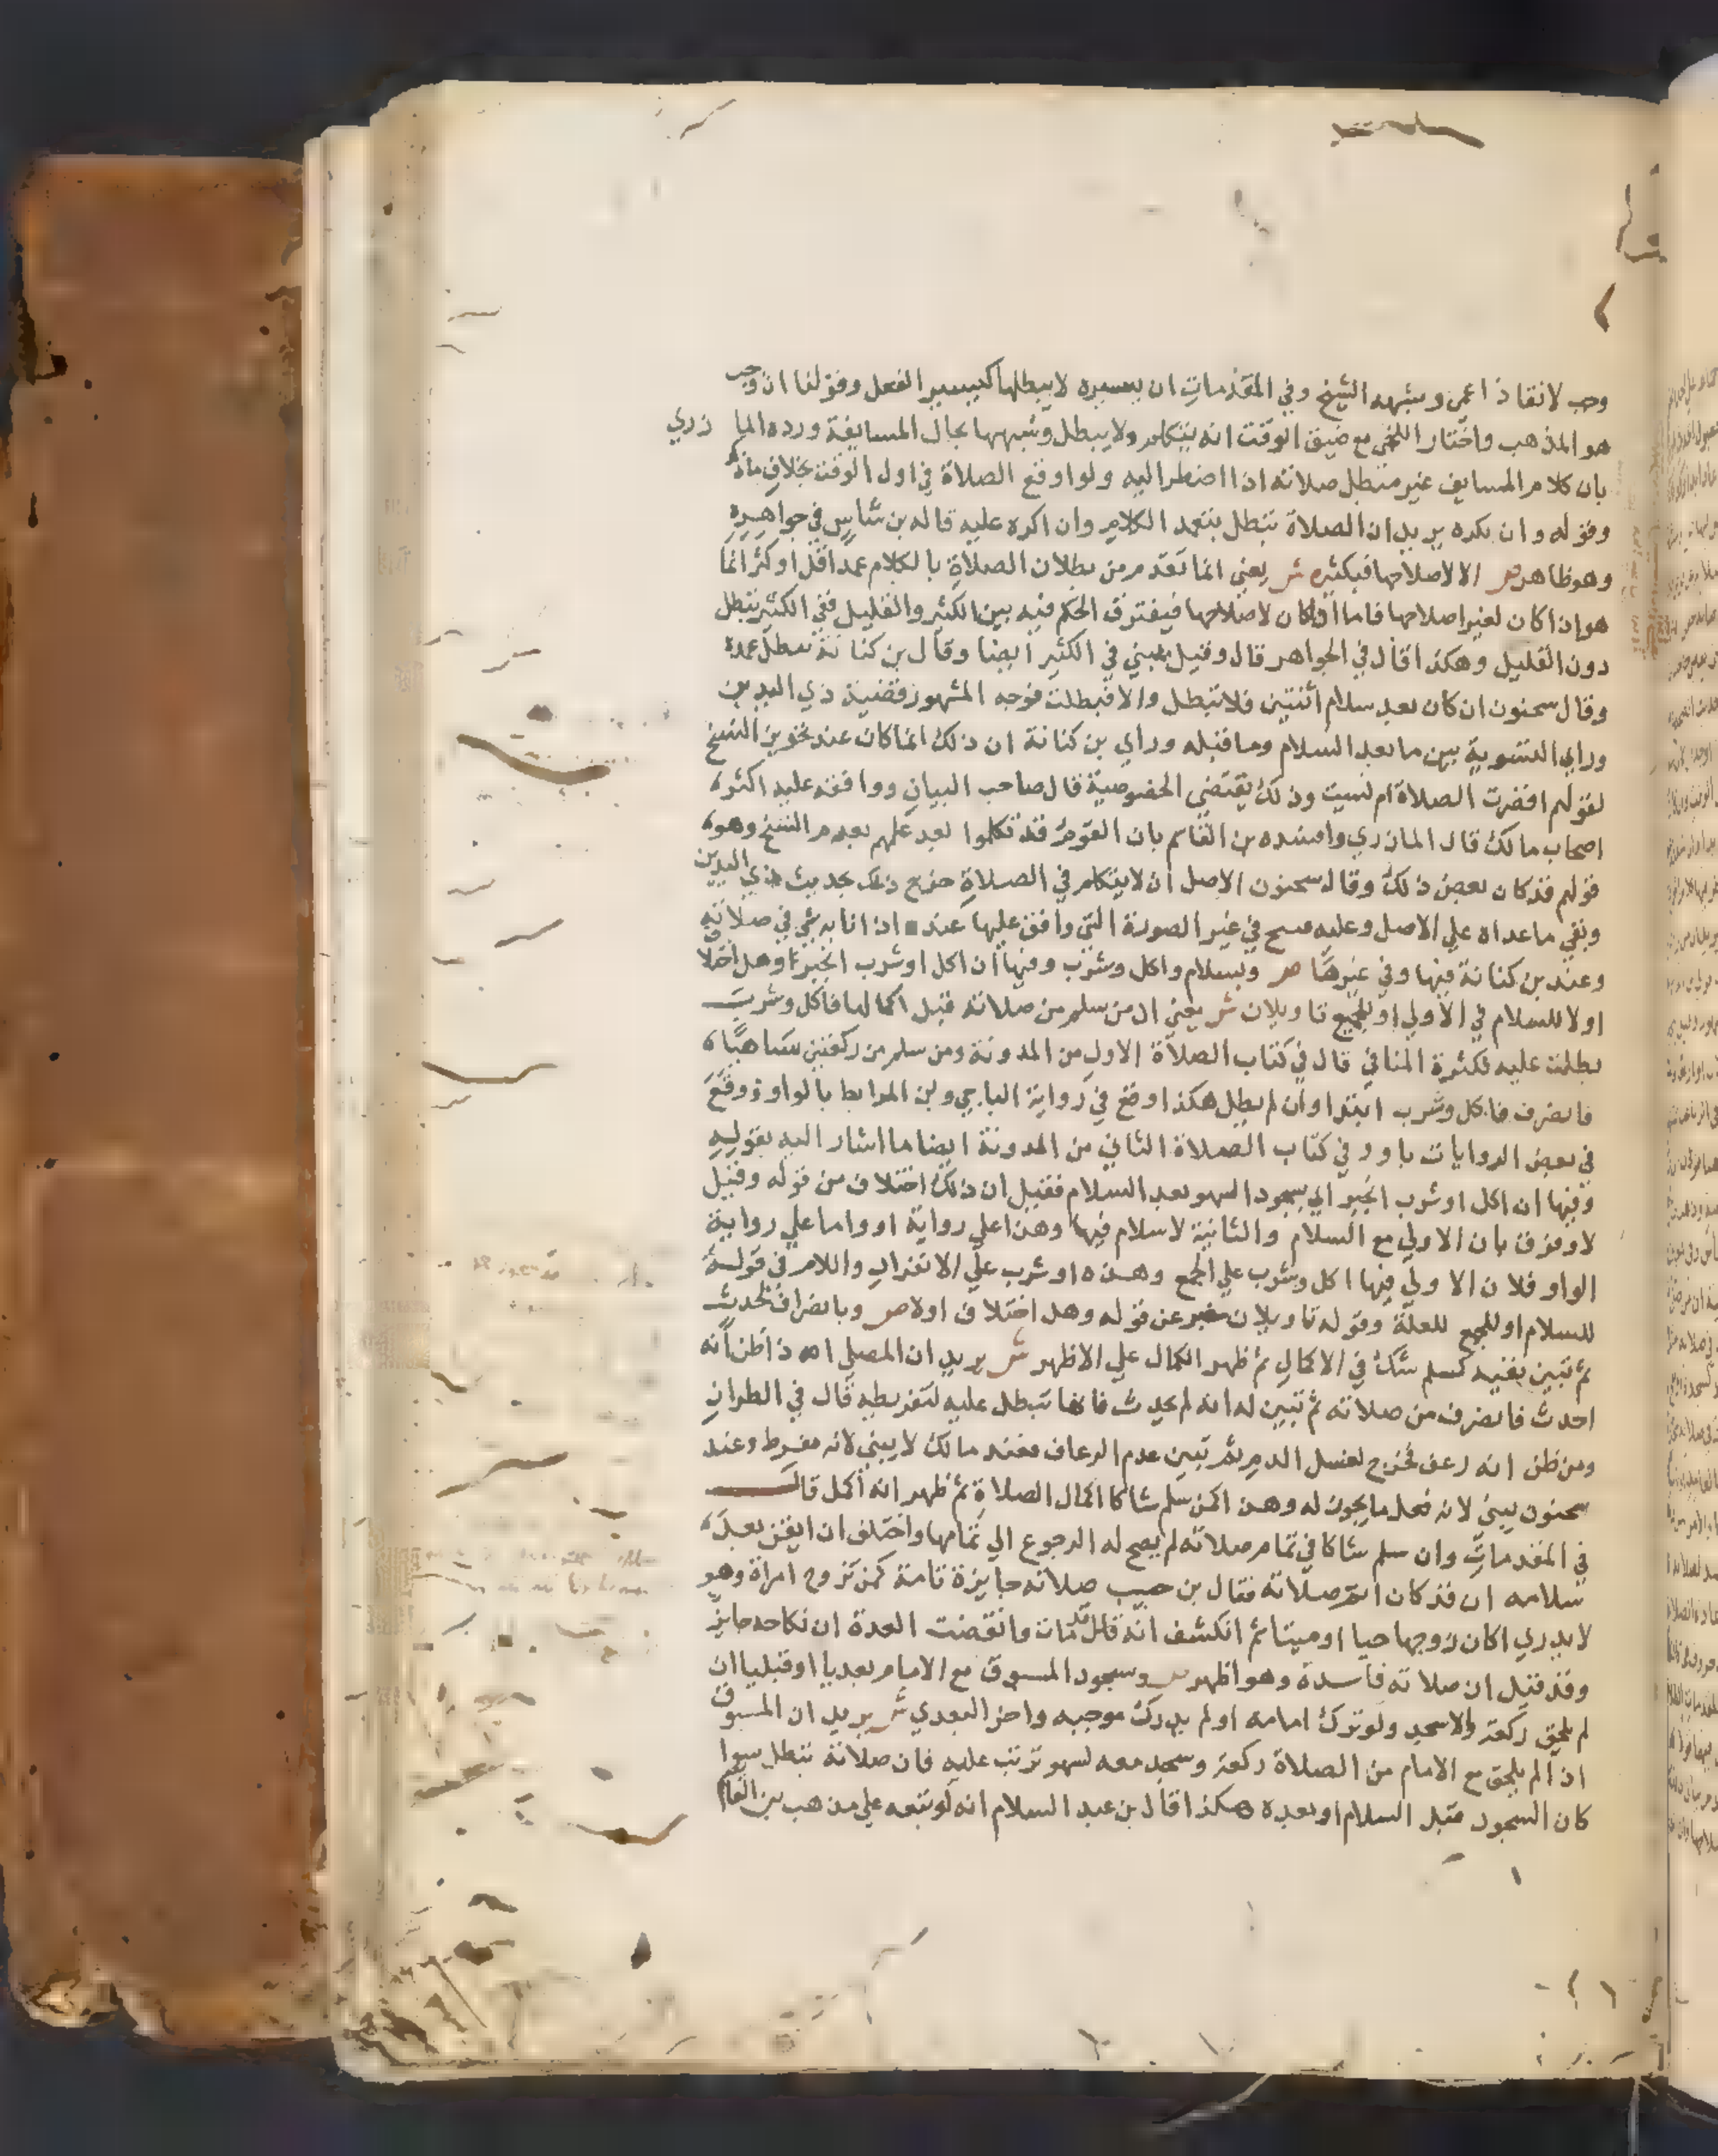 وجب لانقاذ اعمى وشبهه الشيخ وفي المقدمات ان يسيره لا يبطلها كيسير الفعل وقولنا ان وجب
هو المذهب واختار اللخمي مع ضيق الوقت انه يتكلم ولا يبطل وشبهها بحال المسايفة ورده الما زري
بان كلام المسايف غير مبطل صلاته اذا اضطر اليه ولو اوقع الصلاة في اول الوقت بخلاف ماذكر
وقوله وان بكره يريد ان الصلاة تبطل بتعمد الكلام وان اكره عليه قاله بن شاس في جواهره
وهو ظاهر ص الا لاصلاحها فبكثيره ش يعني انما تقدم من بطلان الصلاة بالكلام عمدا قل او كثر انما
هو اذا كان لغير اصلاحها فاما اذا كان لاصلاحها فيفترق الحكم فيه بين الكثير والقليل ففي الكثير تبطل
دون القليل وهكذا قال في الجواهر قال وقيل يبني في الكثير ايضا وقال بن كنانة تبطل عمده
وقال سحنون ان كان بعد سلام اثنتين فلا تبطل والا فبطلت فوجه المشهور قضية ذي اليدين
وراي التسوية بين ما بعد السلام وما قبله وراي بن كنانة ان ذلك انما كان عند تجويز النسخ
لقولهم اقصرت الصلاة ام نسيت وذلك يقتضي الخصوصية قال صاحب البيان ووافقه عليه اكثر
اصحاب مالك قال المازري واسنده بن القاسم بان القوم قد تكلموا بعد علمهم بعدم النسخ وهو
قولهم قد كان بعض ذلك وقال سحنون الاصل ان لا يتكلم في الصلاة خرج ذلك بحديث ذي اليدين
وبقي ما عداه علي الاصل وعليه فسبح في غير الصورة التي وافق عليها عند اذا نابه شي في صلاته
وعند بن كنانة فيها وفي غيرها ص وبسلام واكل وشرب وفيها ان اكل او شرب انجبر وهل اختلاف
اولا للسلام في الاولي او للجمع تاويلان ش يعني ان من سلم من صلاته قبل اكمالها فاكل وشرب
بطلت عليه لكثرة المنافي قال في كتاب الصلاة الاول من المدونة ومن سلم من ركعتين ساهيا
فانصرف فاكل وشرب ابتدا وان لم يطل هكذا وقع في رواية الباجي وبن المرابط بالواو ووقع
في بعض الروايات باو وفي كتاب الصلاة الثاني من المدونة ايضا ما اشار اليه بقوله
وفيها ان اكل او شرب انجبر اي بسجود السهو بعد السلام فقيل ان ذلك اختلاف من قوله وقيل
لا وفرق بان الاولي مع السلام والثانية لا سلام فيها وهذا علي رواية او واما علي رواية
الواو فلان الاولي فيها اكل وشرب علي الجمع وهذه او شرب علي الانفراد واللام في قوله
للسلام او للجمع للعلة وقوله تاويلان خبر عن قوله وهل اختلاف اولا ص وبانصراف لحدث
ثم تبين نفيه كمسلم شك في الاكمال ثم ظهر الكمال علي الاظهر ش يريد ان المصلي اذا ظن انه
احدث فانصرف من صلاته ثم تبين له انه لم يحدث فانها تبطل عليه لتفريطه قال في الطراز
ومن ظن انه رعف فخرج لغسل الدم ثم تبين عدم الرعاف فعند مالك لا يبني لانه مفرط وعند
سحنون يبني لانه فعل ما يجوز له وهذا كمن سلم شاكا اكمال الصلاة ثم ظهر انه اكمل قال
في المقدمات وان سلم شاكا في تمام صلاته لم يصح له الرجوع الي تمامها واختلف ان ايقن بعد
سلامه ان قد كان اتم صلاته فقال بن حبيب صلاته جايزة تامة كمن تزوج امراة وهو
لا يدري اكان زوجها حيا او ميتا ثم انكشف انه قد مات وانقضت العدة ان نكاحه جايز
وقد قيل ان صلاته فاسدة وهو اظهر ص وسجود المسبوق مع الامام بعديا او قبليا ان
لم يلحق ركعة والا سجد ولو ترك امامه او لم يدرك موجبه واخر البعدي ش يريد ان المسبوق
اذا لم يلحق مع الامام من الصلاة ركعة وسجد معه لسهو ترتب عليه فان صلاته تبطل سوا
كان السجود قبل السلام او بعده هكذا قال بن عبد السلام انه لو تبعه علي مذهب بن القاسم